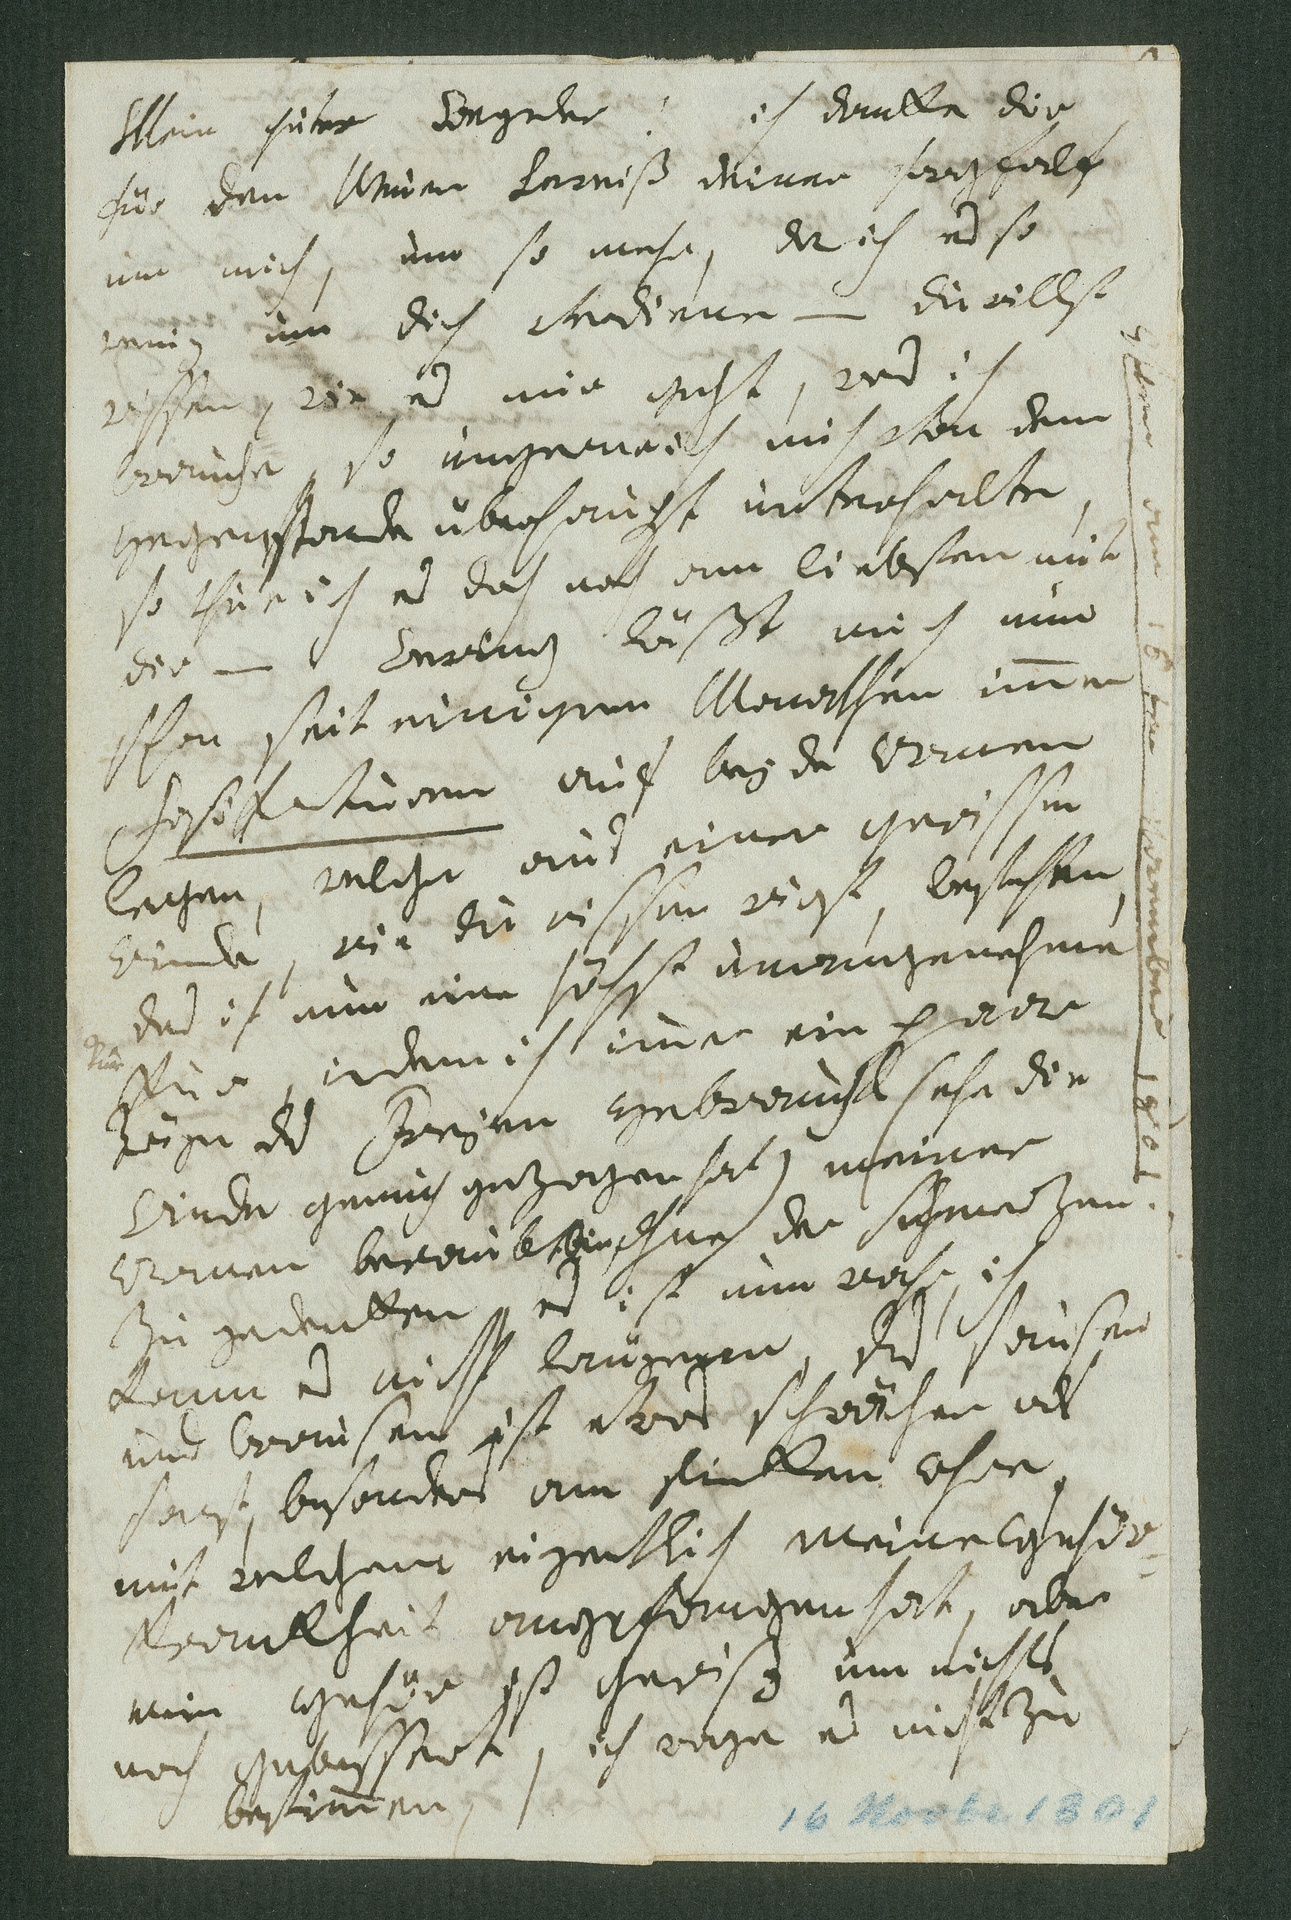 Mein guter Wegeler! ich danke dir
für den Neuen Beweiß deiner sorgfalt
um mich, um so mehr, da ich es so
wenig um dich verdiene — du willst
wissen, wie es mir geht, was ich
brauche, so ungern ich mich von dem
gegenstande überhaupt unterhalte,
so thue ich es doch noch am liebsten mit
dir — Wering läßt mich nun
schon seit einigen Monathen immer
Vesikaturen auf beyde Armen
legen, welche aus einer gewissen
Rinde, wie du wissen wirst, bestehen,
das ist nun eine höchst unangenehme
Kur
Kur, indem ich immer ein paar
täge des Freyen gebrauchs (ehe die
Rinde genug gezogen hat) meiner
Armen beraubt bin, ohne der schmerzen
zu gedenken, es ist nun wahr, ich
kann es nicht läugnen, das sausen
und brausen ist etwas schwächer als
sonst, besonders am linken ohre,
mit welchem eigentlich meine gehör-
krankheit angefangen hat, aber
mein gehör ist gewiß um nichts
noch gebessert, ich wage es nicht zu
bestimmen,
am 16ten november 1801.
16 Novbr 1801